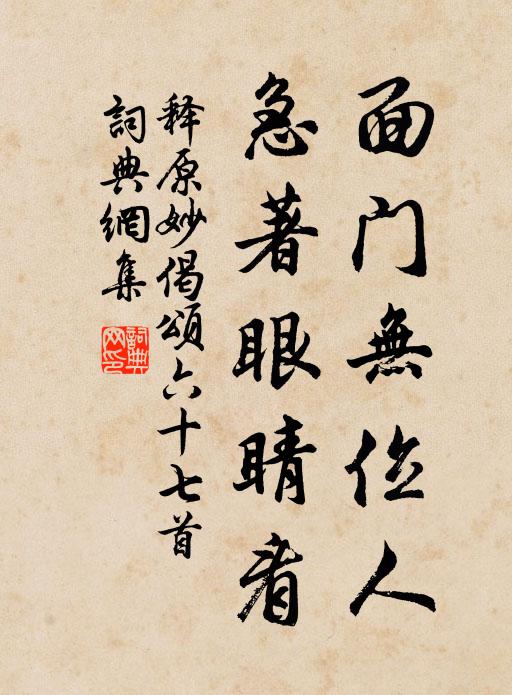 面门無位人
急著眼睛看
释原妙偈頌六十七首
詞典網集
詞典网印